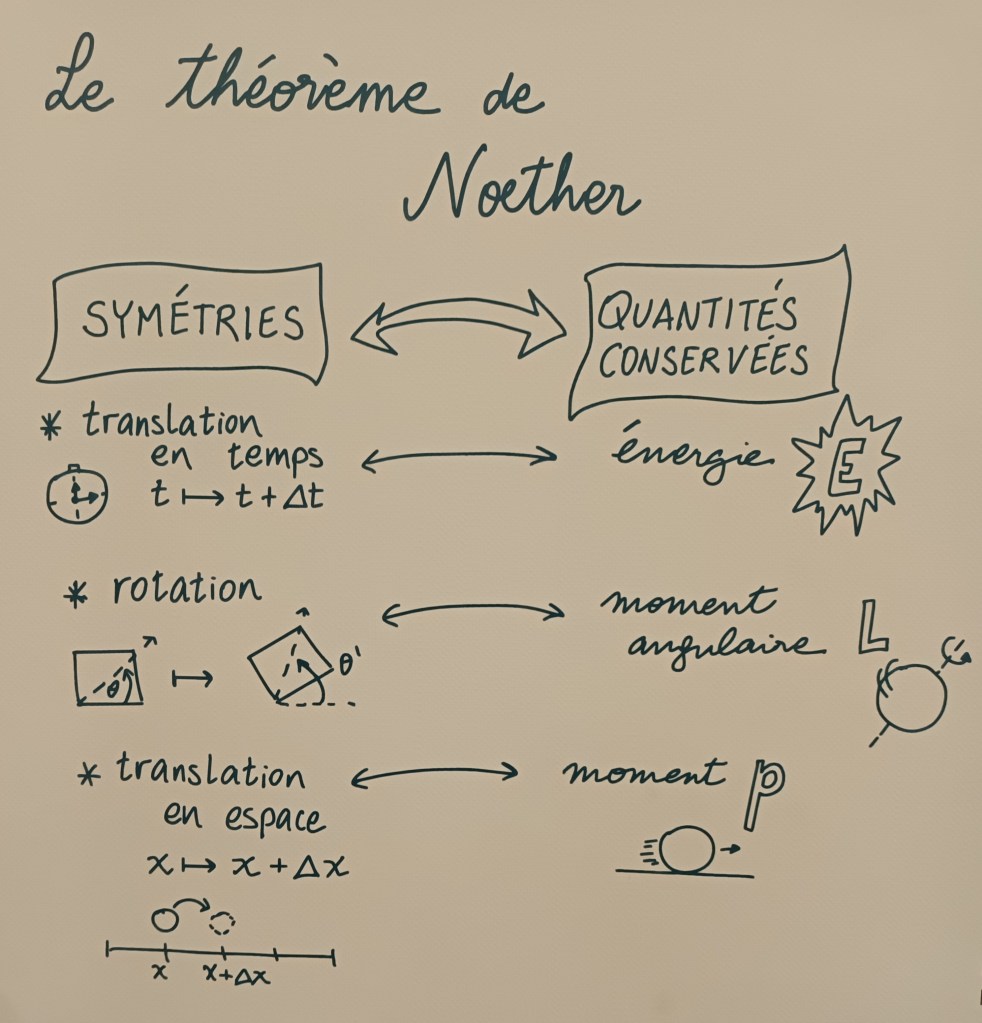 Le théorème de
Nœther
SYMÉTRIES
QUANTITÉS
CONSERVÉES
* translation
en temps
t ↦ t + Δt
énergie
E
* rotation
θ
↦
θ'
moment
angulaire
L
* translation
en espace
x ↦ x + Δx
x
x+Δx
moment
p